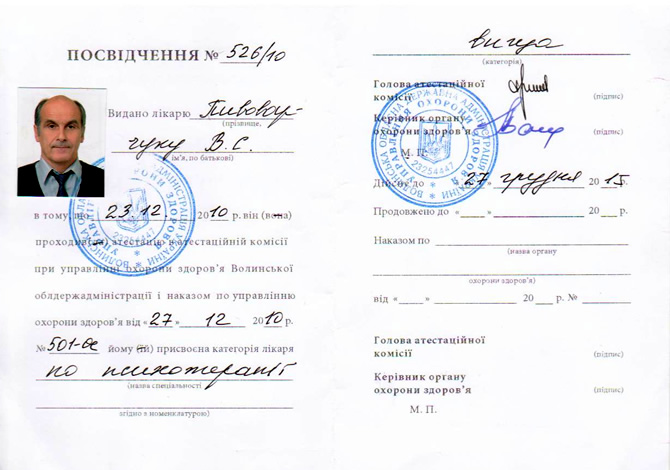 ПОСВІДЧЕННЯ № 526/10
Видано лікарю Пивовар-
(прізвище,
чуку В.С.
ім'я, по батькові)
в тому, що 23.12. 2010 р. він (вона)
проходив(ла) атестацію в атестаційній комісії
при управлінні охорони здоров'я Волинської
облдержадміністрації і наказом по управлінню
охорони здоров'я від «27» 12 2010 р.
№ 501-ос йому (їй) присвоєна категорія лікаря
по психотерапії
(назва спеціальності
згідно з номенклатурою)
вища
(категорія)
Голова атестаційної
комісії (підпис)
Керівник органу
охорони здоров'я (підпис)
М. П.
Дійсне до «27» грудня 2015 р.
Продовжено до «» 20 р.
Наказом по
(назва органу
охорони здоров'я)
від «» 20 р. №
Голова атестаційної
комісії (підпис)
Керівник органу
охорони здоров'я (підпис)
М. П.
ВОЛИНСЬКА ОБЛАСНА ДЕРЖАВНА АДМІНІСТРАЦІЯ УКРАЇНИ
УПРАВЛІННЯ ОХОРОНИ ЗДОРОВ'Я
23254447